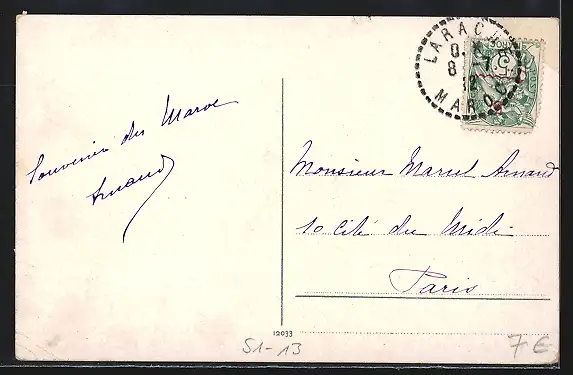 Souvenir du Maroc
Arnaud
LARACHE
8 -7
12
MAROC
Monsieur Marcel Arnaud
10 cité du Midi
Paris
12033
S1-13
7€